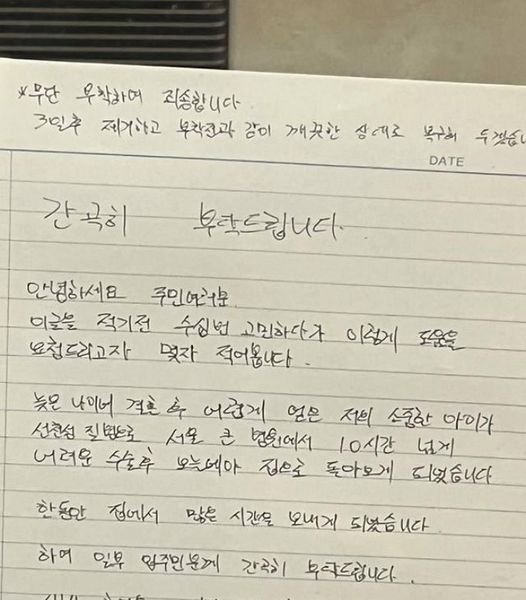 *무단 부착하여 죄송합니다
3일후 제거하고 부착전과 같이 깨끗한 상태로 복구해 두겠습니
DATE
간곡히 부탁드립니다.
안녕하세요 주민여러분
이글을 적기전 수십번 고민하다가 이렇게 도움을
요청드리고자 몇자 적어봅니다.
늦은 나이에 결혼 후 어렵게 얻은 저희 소중한 아이가
선천성 질병으로 서울 큰 병원에서 10시간 넘게
어려운 수술후 오늘에야 집으로 돌아오게 되었습니다
한동안 집에서 많은 시간을 보내게 되었습니다.
하여 일부 입주민분께 간곡히 부탁드립니다.